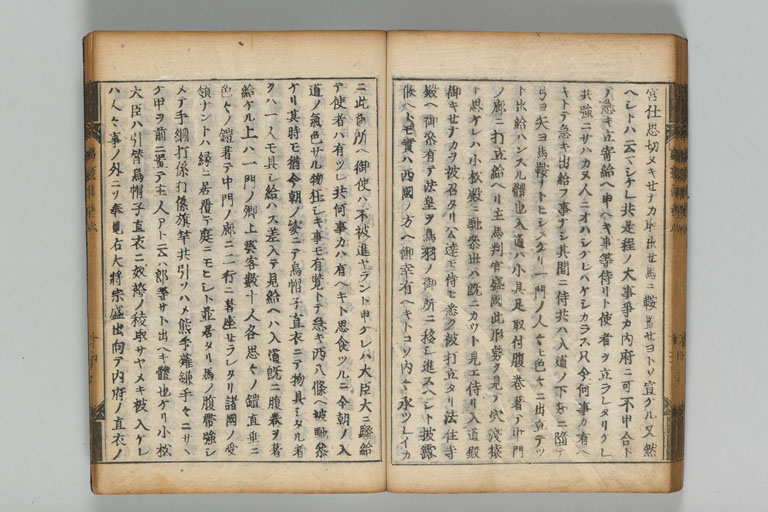 宮仕思切ヌキセナカ取出セ馬ニ鞍置セヨトソ宣ケル又然
ヘシトハ云マシケレ共是程ノ大事争カ内府ニ可不申合ト
ノ急キ立寄給ヘ申ヘキ事等侍リト使者ヲ立ラレタリケレ
共強ニサハカヌ人ニオハシケレハケシカラス只今何事カ有ヘ
キトテ急キ出給フ事ナシ其間ニ侍共ハ入道ノ下知ニ随テ
弓ヨ矢ヨ馬鞍ナトヒシメケリ一門ノ人々モ色々ニ出立テツ
ト出給ハンスル體也入道ハ小具足取付腹巻著テ中門
ノ廊ニ打立給ヘリ主馬判官盛國此形勢ヲ見テ穴浅猿
ト思ケレハ小松殿ニ馳参世ハ既ニカウト見エ侍リ入道殿
御キセナカヲ被召タリ公達モ侍モ悉ク被打立タリ法住寺
殿ヘ御発有テ法皇ヲ鳥羽ノ御所ニ移シ進スヘシト披露
候ヘトモ實ハ西國ノ方ヘ御幸有ヘキトコソ内々承ツレイカ
ニ此御所ヘ御使ハ不被進ヤラント申ケレハ大臣大ニ騒給
テ使者ハ有ツレ共何事カハ有ヘキト思食ツルニ今朝ノ入
道ノ氣色サル物狂シキ事モ有覧トテ急キ西八條ヘ被馳参
ケリ其時モ猶今朝ノ姿ニテ烏帽子直衣ニテ物具シタル者
ヲハ一人モ具シ給ハス差入テ見給ヘハ入道既ニ腹巻ヲ著
給ケル上ハ一門ノ卿上雲客數十人各思々ノ鎧直垂ニ
色々ノ鎧著テ中門ノ廊ニ二行ニ著座セラレタリ諸國ノ受
領ナントハ縁ニ居覆テ庭ニモヒシト並居タリ馬ノ腹帯強シ
メテ手綱打係打係旗竿共引ソハメ熊手薙鎌手々ニサヽ
ケ甲ヲ前ニ置テ主人アト云ハ郎等サト出ヘキ體也ケリ小松
大臣ハ引替烏帽子直衣ニ奴袴ノ稜取サヤメキ被入ケレ
ハ人々事ノ外ニソ奉見右大將宗盛出向テ内府ノ直衣ノ